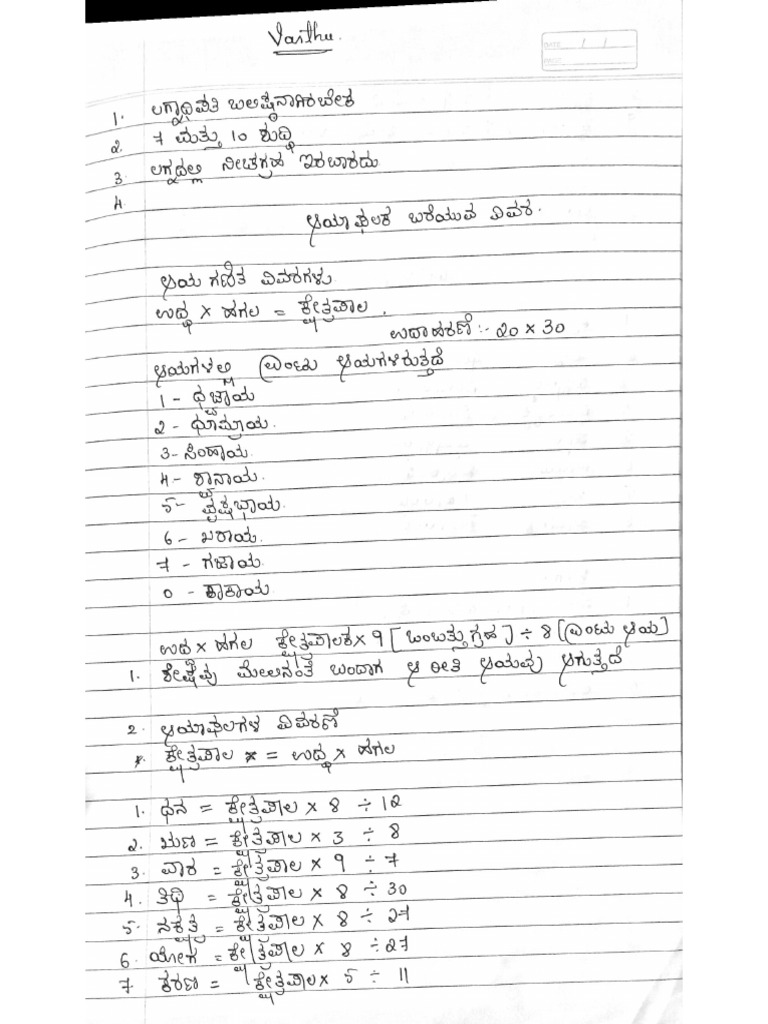 Vasthu.
DATE / /
PAGE
1. ಲಗ್ನಾಧಿಪತಿ ಬಲಿಷ್ಠನಾಗಿರಬೇಕ
2. 7 ಮತ್ತು 10 ಶುದ್ಧಿ
3. ಲಗ್ನದಲ್ಲಿ ನೀಚಗ್ರಹ ಇರಬಾರದು
4.
ಆಯಾಫಲಕ ಬರೆಯುವ ವಿವರ.
ಆಯ ಗಣಿತ ವಿವರಗಳು
ಉದ್ದ × ಹಗಲ = ಕ್ಷೇತ್ರಪಾಲ.
ಉದಾಹರಣೆ:- 20 × 30
ಆಯಗಳಲ್ಲಿ ಎಂಟು ಆಯಗಳಿರುತ್ತದೆ
1 - ಧ್ವಜಾಯ
2 - ಧೂಮ್ರಾಯ.
3 - ಸಿಂಹಾಯ.
4 - ಶ್ವಾನಾಯ.
5 - ವೃಷಭಾಯ.
6 - ಖರಾಯ.
7 - ಗಜಾಯ.
0 - ಕಾಕಾಯ
ಉದ್ದ × ಹಗಲ ಕ್ಷೇತ್ರಪಾಲಕ × 9 [ಒಂಬತ್ತು ಗ್ರಹ] ÷ 8 [ಎಂಟು ಆಯ]
1. ಶೇಷವು ಮೇಲಿನಂತೆ ಬಂದಾಗ ಆ ರೀತಿ ಆಯವು ಆಗುತ್ತದೆ
2. ಆಯಾಫಲಗಳ ವಿವರಣೆ
* ಕ್ಷೇತ್ರಪಾಲ = ಉದ್ದ × ಹಗಲ
1. ಧನ = ಕ್ಷೇತ್ರಪಾಲ × 8 ÷ 12
2. ಋಣ = ಕ್ಷೇತ್ರಪಾಲ × 3 ÷ 8
3. ವಾರ = ಕ್ಷೇತ್ರಪಾಲ × 9 ÷ 7
4. ತಿಥಿ = ಕ್ಷೇತ್ರಪಾಲ × 8 ÷ 30
5. ನಕ್ಷತ್ರ = ಕ್ಷೇತ್ರಪಾಲ × 8 ÷ 27
6. ಯೋಗ = ಕ್ಷೇತ್ರಪಾಲ × 8 ÷ 27
7. ಕರಣ = ಕ್ಷೇತ್ರಪಾಲ × 5 ÷ 11